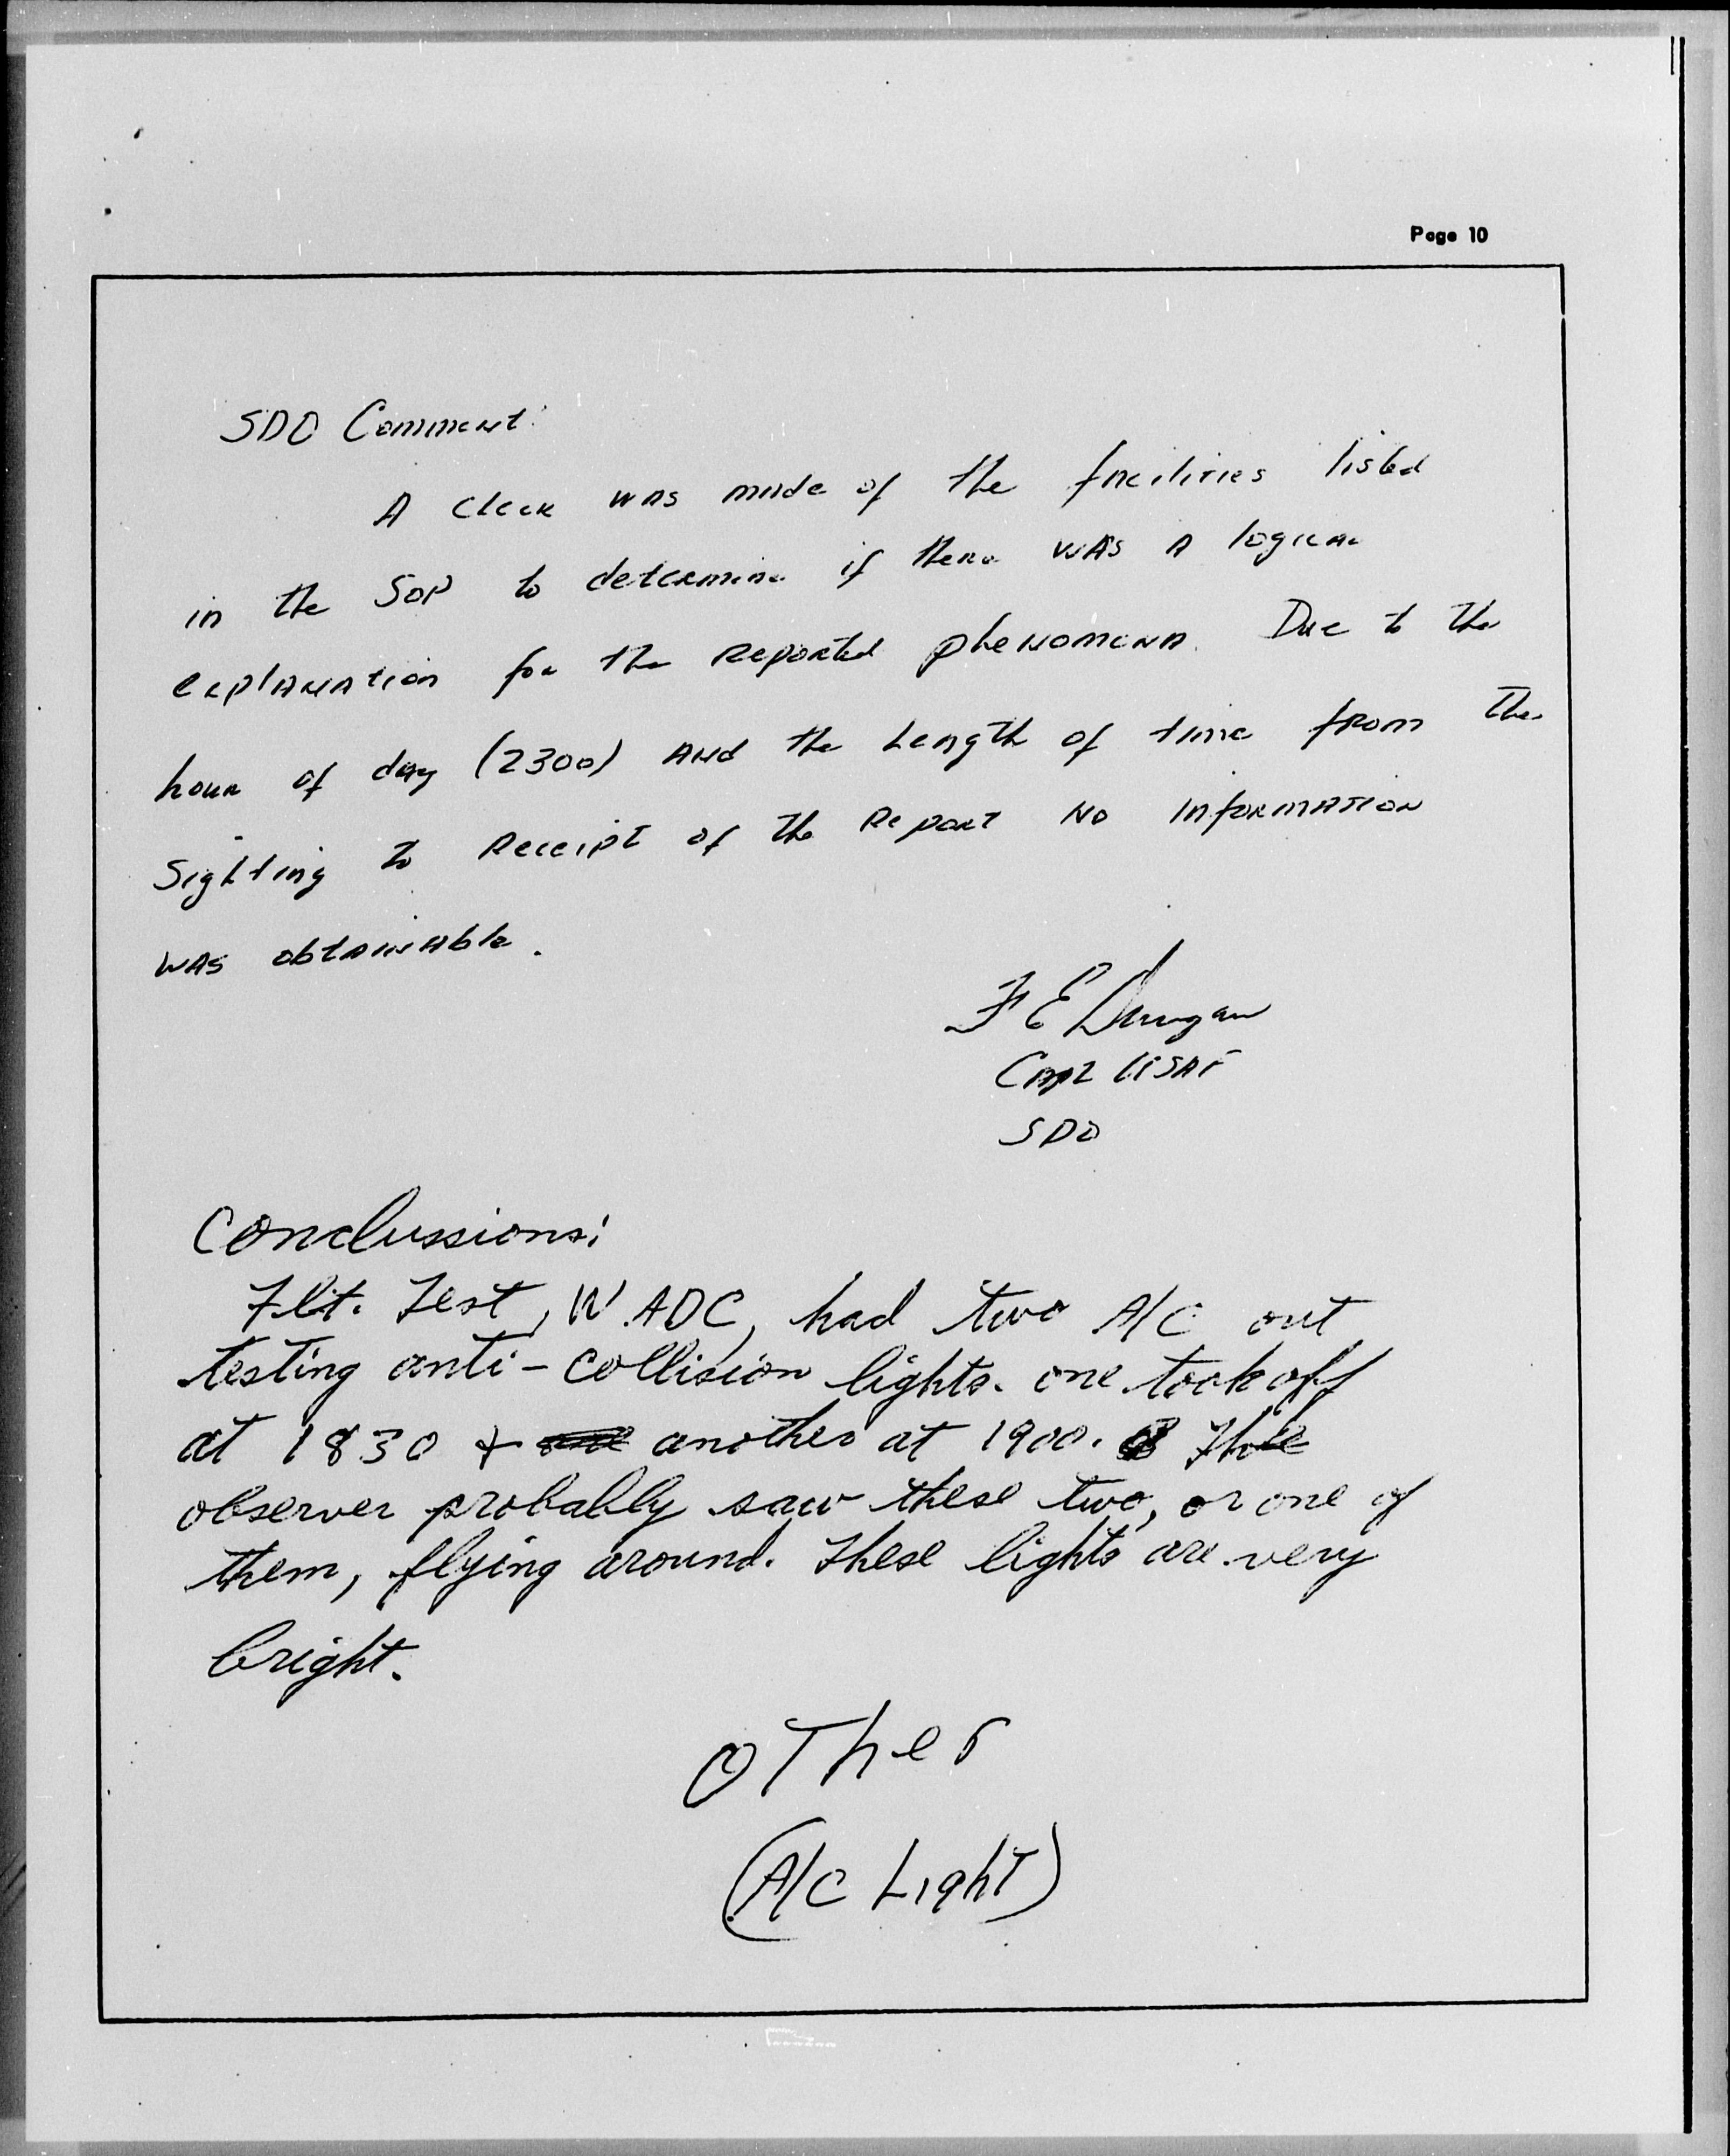 Page 10
SDO Comment:
A Check was made of the facilities listed
in the SOP to determine if there was a logical
explanation for the reported phenomena. Due to the
hour of day (2300) and the length of time from the
sighting to receipt of the report no information
was obtainable.
F E
Capt USAF
SDO
Conclussions:
Flt. Test, WADC, had two A/C out
testing anti-collision lights. one took off
at 1830 + another at 1900. The
observer probably saw these two, or one of
them, flying around. These lights are very
bright.
OTher
(A/C Light)